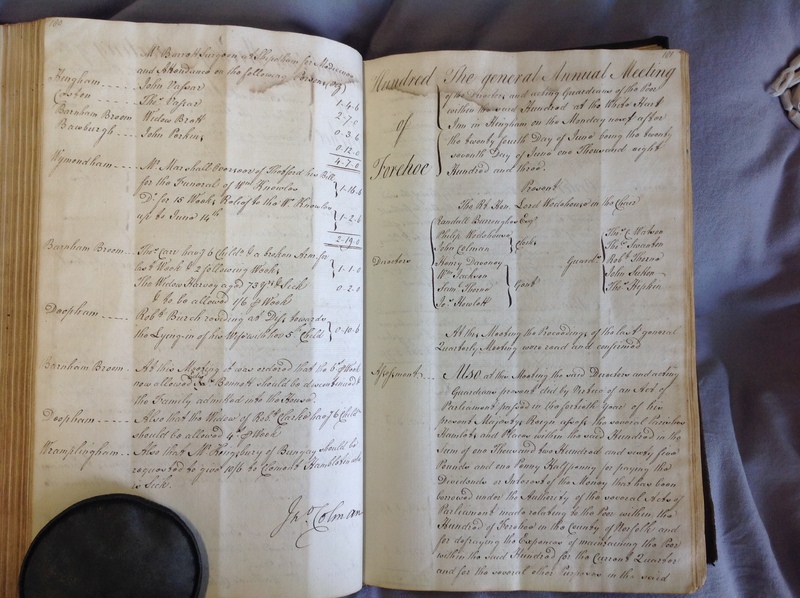 Mr. Barrett Surgeon at Shipdham for Medicines
and Attendance on the following Persons (viz)
Hingham .... John Vassar 1-4-6
Coston .... Thos. Vassar 2-7-0
Barnham Broom Widow Bratt 0-3-6
Bawburgh .... John Perkins 0-12-0
4-7-0
Wymondham .... Mr. Marshall Overseer of Thetford his Bill
for the Funeral of Wm. Knowles 1-16-6
Do. for 15 Weeks Relief to the Wo. Knowles
up to June 14th 1-2-6
2-19-0
Barnham Broom .. Thos. Carr has 6 Childn. & a broken Arm for
last Week & 2 following Weeks 1-1-0
The Widow Harvey aged 73 Yrs. & Sick 0-2-0
to be allowed 1/6 P Week
Deopham .... Robt. Burch residing at Diss towards
the Lying-in of his Wife with her 5th Child 0-10-6
Barnham Broom .. At this Meeting it was ordered that the 6s. P Week
now allowed Bennett should be discontinued &
the Family admitted into the House
Deopham .... Also that the Widow of Robt. Clarke has 6 Childn.
should be allowed 4s. P Week
Wramplingham .. Also that Mr. of Bungay should be
requested to give 10/6 to Clement Hamblton who
is Sick.
Jno. Colman
101
Hundred of Forehoe
The general Annual Meeting
of the Directors and acting Guardians of the Poor
within the said Hundred at the White Hart
Inn in Hingham on the Monday next after
the twenty fourth Day of June being the twenty
seventh Day of June one Thousand eight
Hundred and three.
Present
The Rt. Hon. Lord Wodehouse in the Chair
Directors
Randall Burroughes Esqr.
Philip Wodehouse
John Colman
Clerks
Henry Daveney
Wm. Jackson
Saml. Thorne
Js. Howlett
Gent
Guardns.
Thos. C. Matson
Thos.
Robt. Thorne
John
Thos. Hipkin
At this Meeting the Proceedings of the last general
Quarterly Meeting were read and confirmed
Assessment .. Also at this Meeting the said Directors and acting
Guardians present did by Virtue of an Act of
Parliament passed in the fortieth Year of his
present Majestys Reign assess the several Parishes
Hamlets and Places within the said Hundred in the
Sum of one Thousand two Hundred and ninty four
Pounds and one Penny Halfpenny for paying the
Dividends or Interest of the Money that has been
borrowed under the Authority of the several Acts of
Parliament made relating to the Poor within the
Hundred of Forehoe in the County of Norfolk and
for defraying the Expences of maintaining the Poor
within the said Hundred for the Current Quarter
and for the several other Purposes in the said